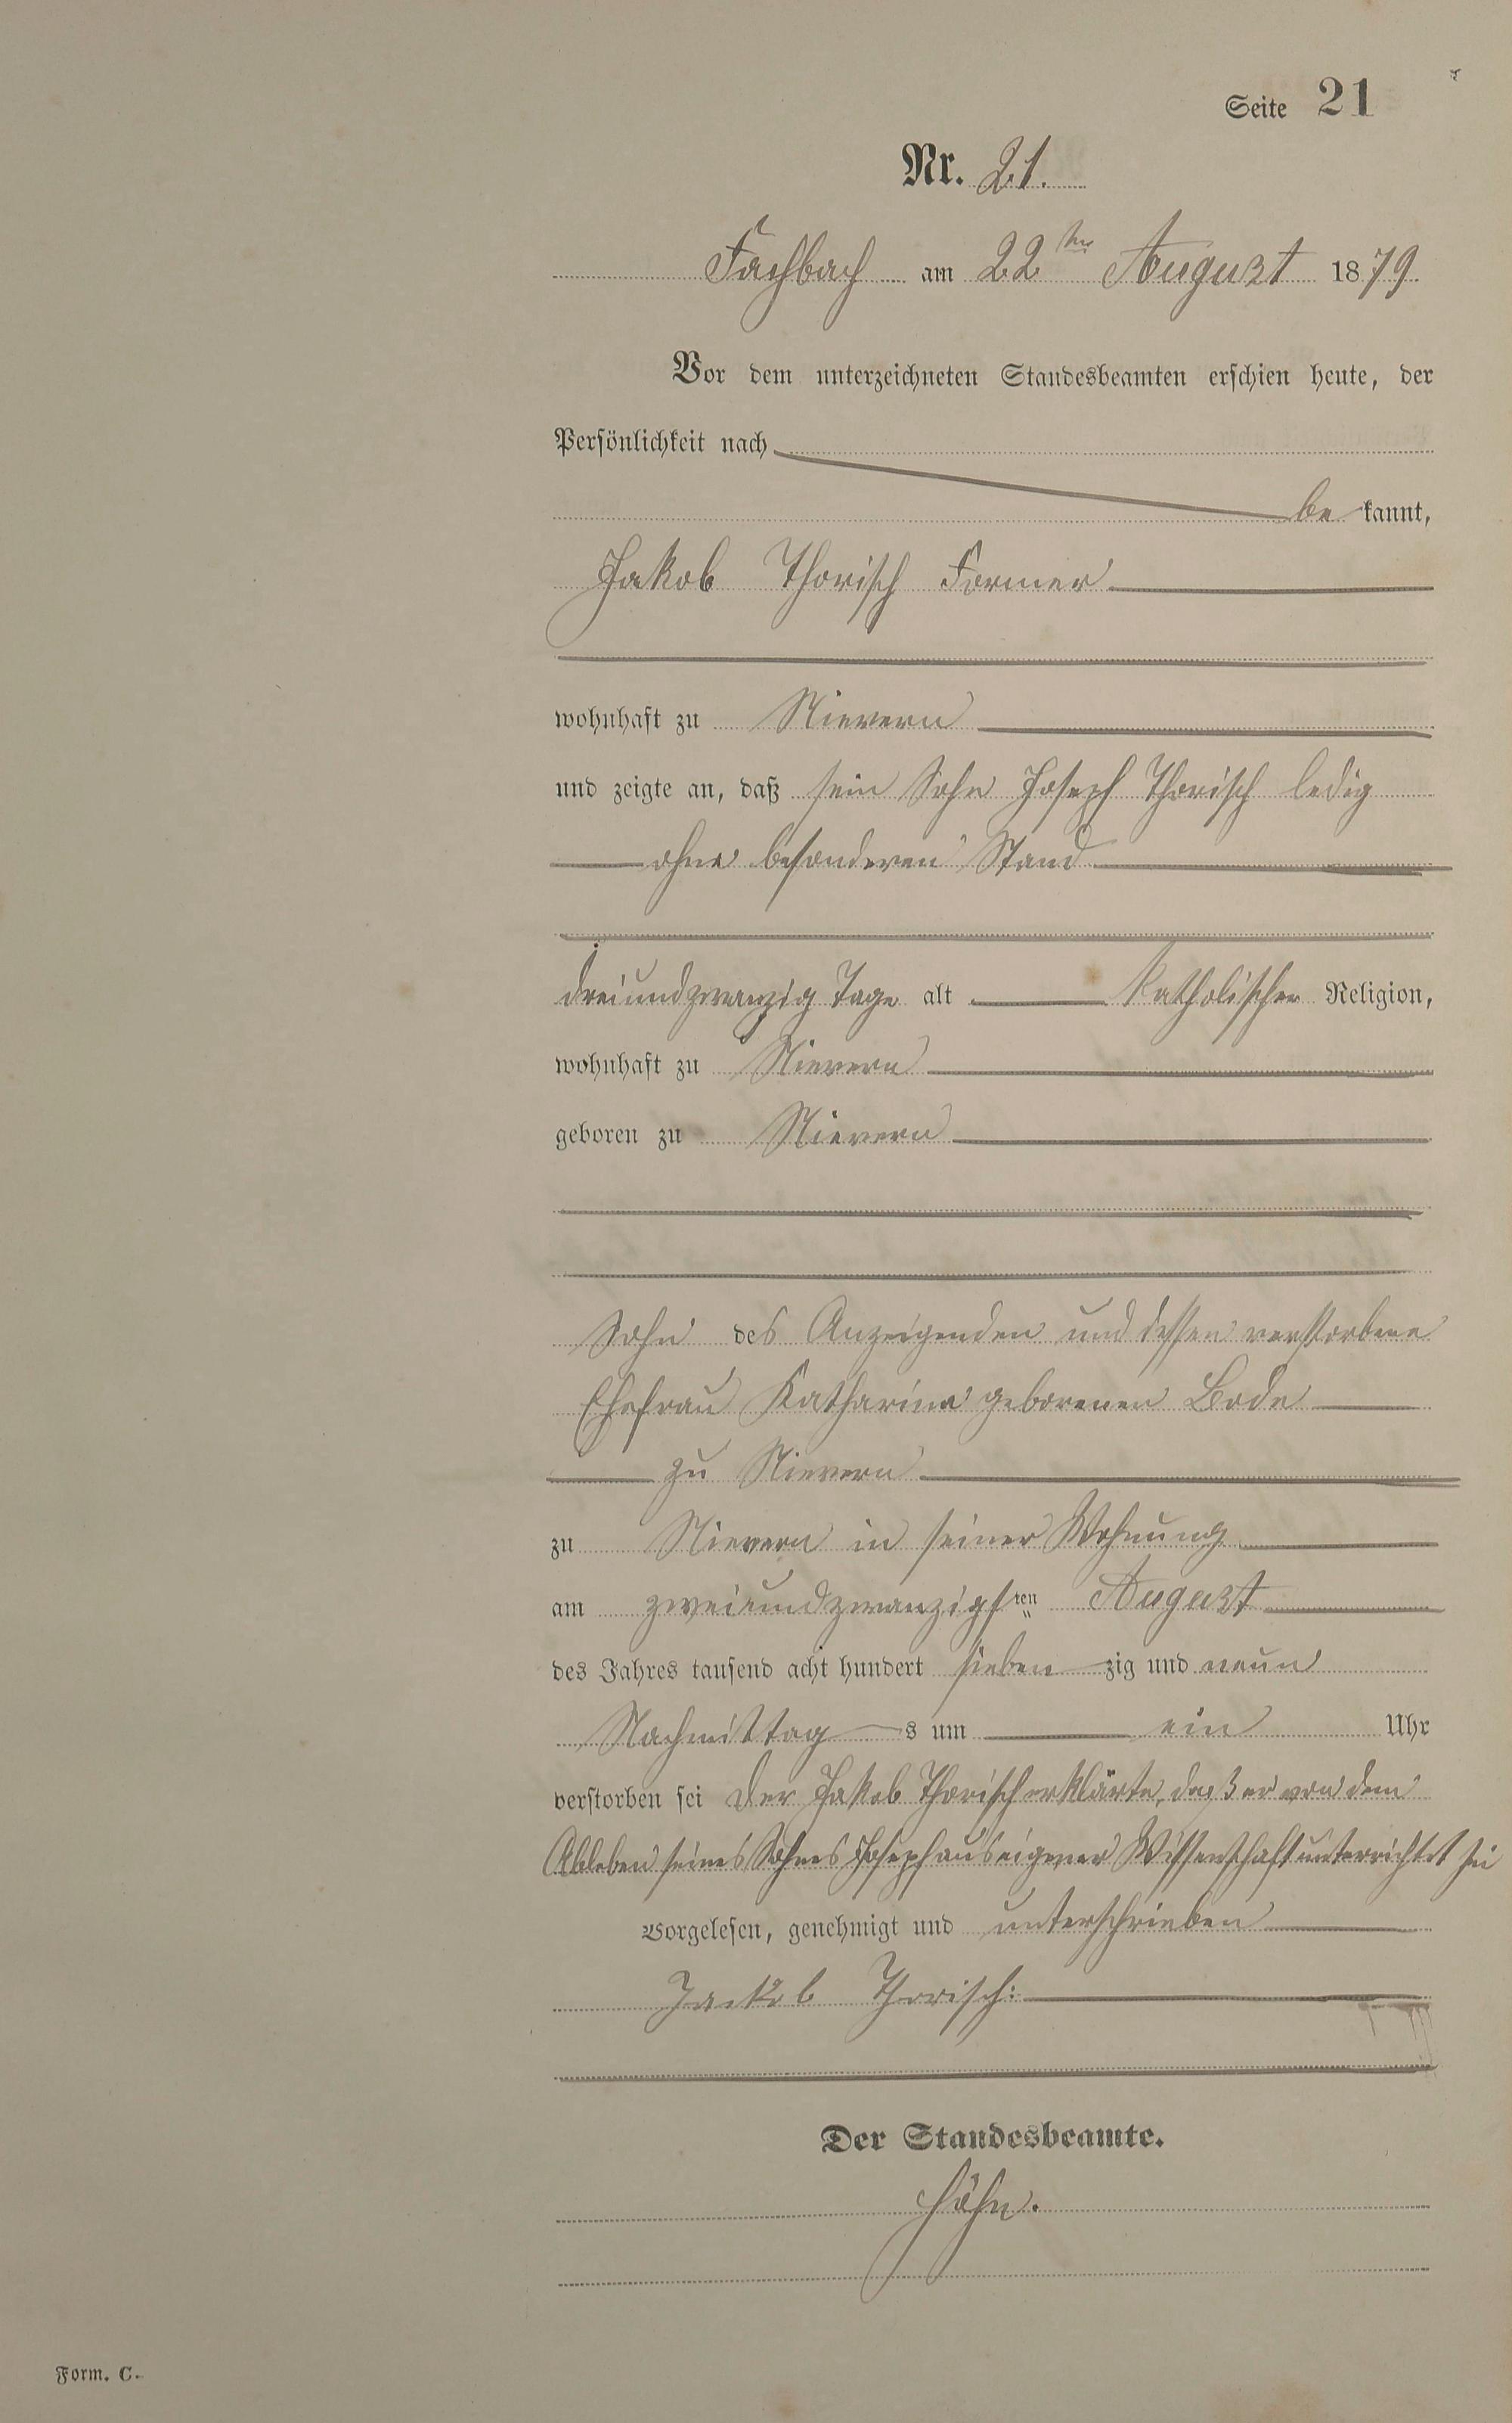 Seite 21
Nr. 21.
Fachbach am 22ten August 1879.
Vor dem unterzeichneten Standesbeamten erschien heute, der
Persönlichkeit nach
be kannt,
Jakob Thorisch Former
wohnhaft zu Nievern
und zeigte an, daß sein Sohn Joseph Thorisch ledig
ohne besonderen Stand
dreiundzwanzig Tage alt katholischer Religion,
wohnhaft zu Nievern
geboren zu Nievern
Sohn des Anzeigenden und dessen verstorbene
Ehefrau Katharina geborenen Bode
zu Nievern
zu Nievern in seiner Wohnung
am zweiundzwanzigsten August
des Jahres tausend acht hundert sieben zig und neun
Nachmittag s um ein Uhr
verstorben sei Der Jakob Thorisch erklärte, daß er von dem
Ableben seines Sohnes Joseph aus eigener Wissenschaft unterrichtet sei
Vorgelesen, genehmigt und unterschrieben
Jackob Thorisch:
Der Standesbeamte.
Höhn.
Form. C.